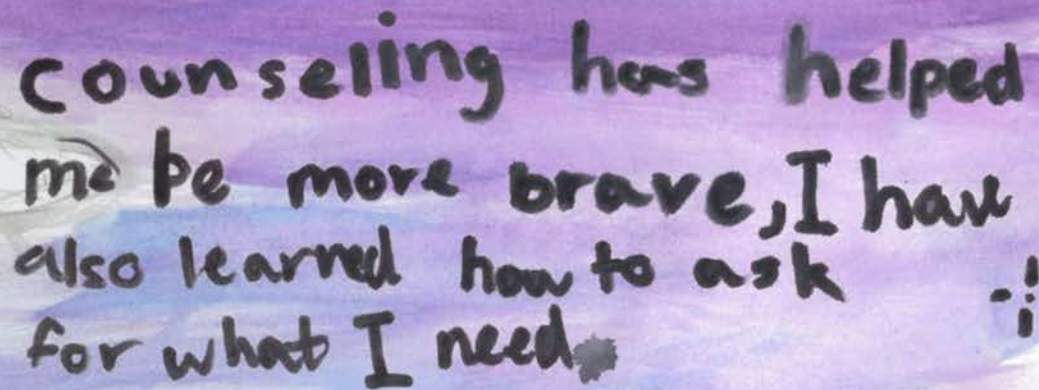 counseling has helped
me be more brave, I have
also learned how to ask
for what I need.